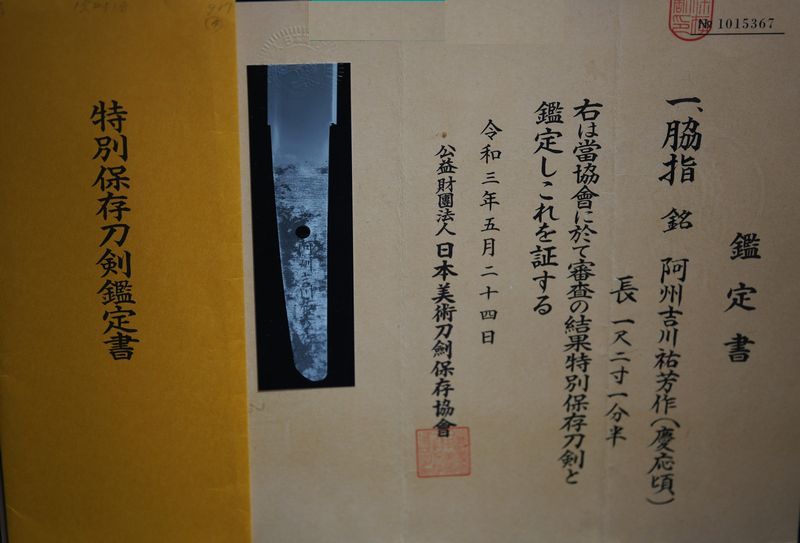 № 1015367
鑑定書
一、脇指 銘 阿州吉川祐芳作(慶応頃)
長 一尺二寸一分半
右は當協會に於て審査の結果特別保存刀剣と
鑑定しこれを証する
令和三年五月二十四日
公益財團法人 日本美術刀劍保存協會
特別保存刀剣鑑定書